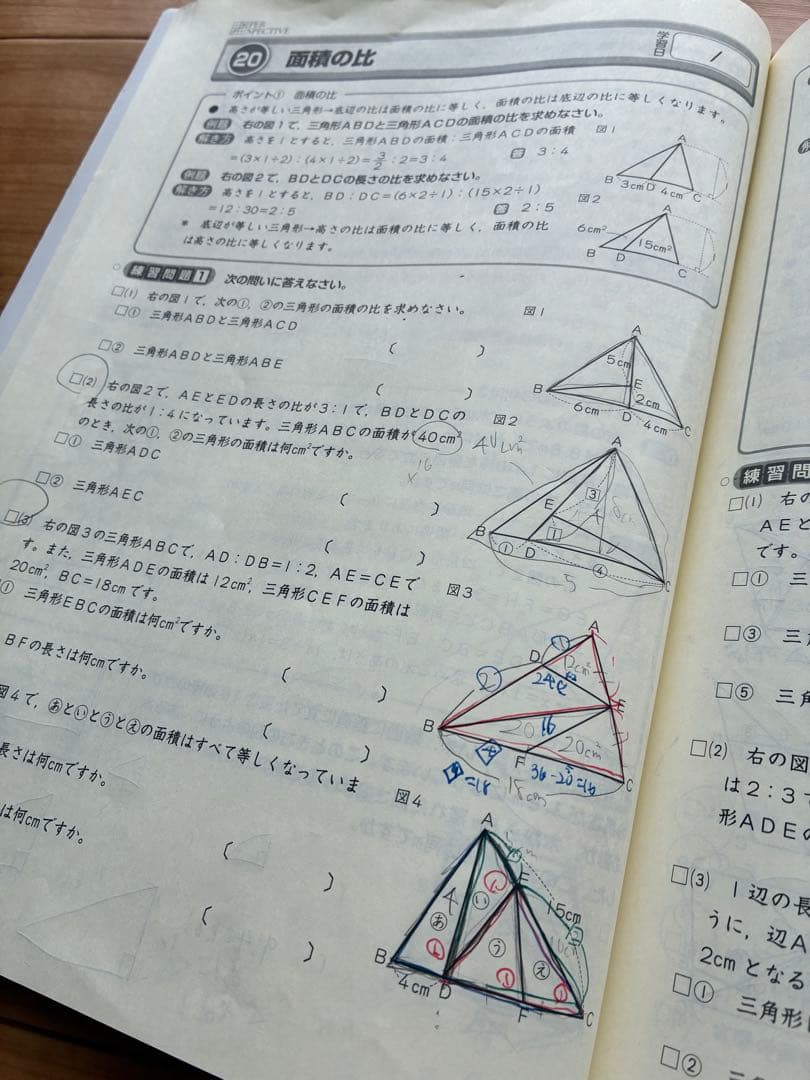 20 面積の比
学習日 /
ポイント① 面積の比
● 高さが等しい三角形→底辺の比は面積の比に等しく，面積の比は底辺の比に等しくなります。
例題 右の図1で，三角形ABDと三角形ACDの面積の比を求めなさい。
図1
解き方 高さを1とすると，三角形ABDの面積：三角形ACDの面積
=(3×1÷2)：(4×1÷2)=3/2：2=3：4
答 3：4
A
B 3cm D 4cm C
例題 右の図2で，BDとDCの長さの比を求めなさい。
解き方 高さを1とすると，BD：DC=(6×2÷1)：(15×2÷1)
=12：30=2：5
答 2：5
図2
A
6cm²
15cm²
B D C
* 底辺が等しい三角形→高さの比は面積の比に等しく，面積の比
は高さの比に等しくなります。
練習問題1 次の問いに答えなさい。
□(1) 右の図1で，次の①，②の三角形の面積の比を求めなさい。
□① 三角形ABDと三角形ACD
( )
□② 三角形ABDと三角形ABE
( )
図1
A
5cm
E
2cm
B 6cm D 4cm C
□(2) 右の図2で，AEとEDの長さの比が3：1で，BDとDCの
長さの比が1：4になっています。三角形ABCの面積が40cm²
のとき，次の①，②の三角形の面積は何cm²ですか。
□① 三角形ADC
( )
□② 三角形AEC
( )
図2
40cm²
16
A
3
E
1
B ① D ④ C
5
□(3) 右の図3の三角形ABCで，AD：DB=1：2，AE=CEで
す。また，三角形ADEの面積は12cm²，三角形CEFの面積は
20cm²，BC=18cmです。
① 三角形EBCの面積は何cm²ですか。
( )
BFの長さは何cmですか。
( )
図3
A
①
D
12cm²
②
24
E
B
20
16
20cm²
F
36-20=16
=18
18cm
C
図4で，あといとうとえの面積はすべて等しくなっていま
長さは何cmですか。
( )
は何cmですか。
( )
図4
A
E
15cm
②
あ
い
う
え
B 4cm D F C
練習問
□(1) 右の
AEと
です。
□① 三
□③ 三
□⑤ 三角
□(2) 右の図
は2：3で
形ADEの
□(3) 1辺の長
うに，辺A
2cmとなる
□① 三角形
□②